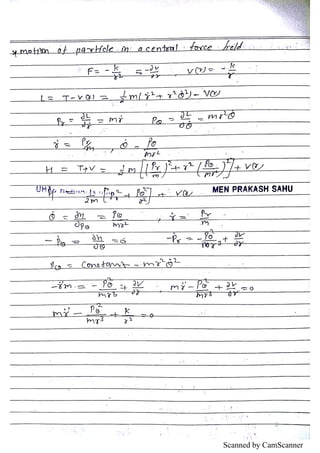 * motion of particle in a central force field
F = -k/r² = -∂V/∂r , V(r) = -k/r
L = T-V(r) = 1/2 m(ṙ² + r²θ̇²) - V(r)
Pr = ∂L/∂ṙ = mṙ    Pθ = ∂L/∂θ̇ = mr²θ̇
ṙ = Pr/m , θ̇ = Pθ/mr²
H = T+V = 1/2 m [(Pr/m)² + r²(Pθ/mr²)²] + V(r)
1/2m [Pr² + Pθ²/r²] + V(r) MEN PRAKASH SAHU
θ̇ = ∂H/∂Pθ = Pθ/mr² , ṙ = Pr/m
-Ṗθ = ∂H/∂θ = 0    -Ṗr = -Pθ²/mr³ + ∂V/∂r
Pθ = Constant = mr²θ̇²
-r̈m = -Pθ²/mr³ + ∂V/∂r    mr̈ - Pθ²/mr³ + ∂V/∂r = 0
mr̈ - Pθ²/mr³ + k/r² = 0
Scanned by CamScanner